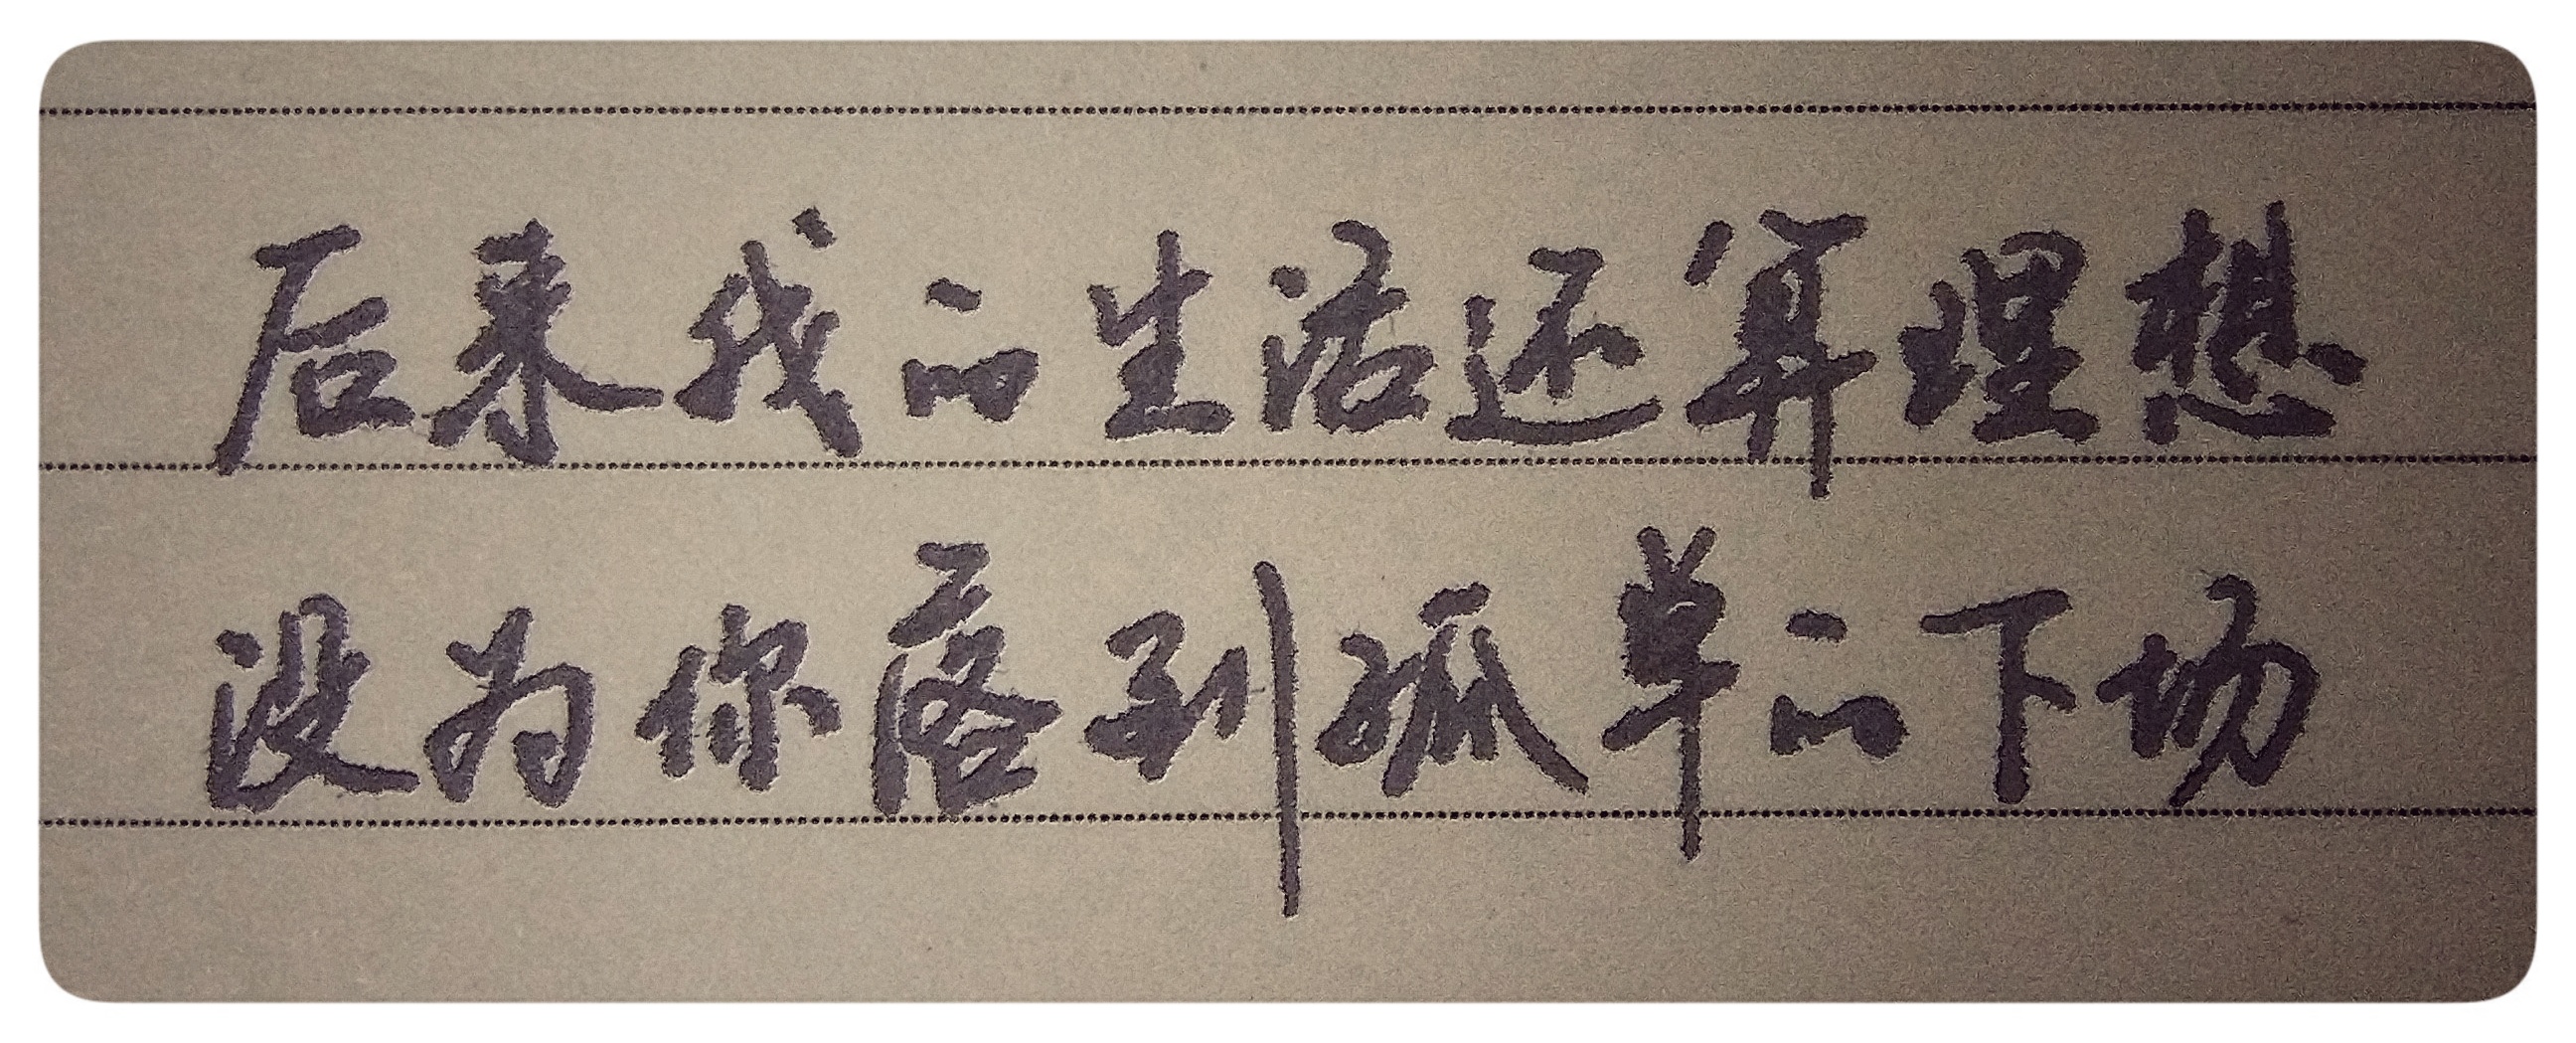 后来我的生活还算理想
没为你落到孤单的下场